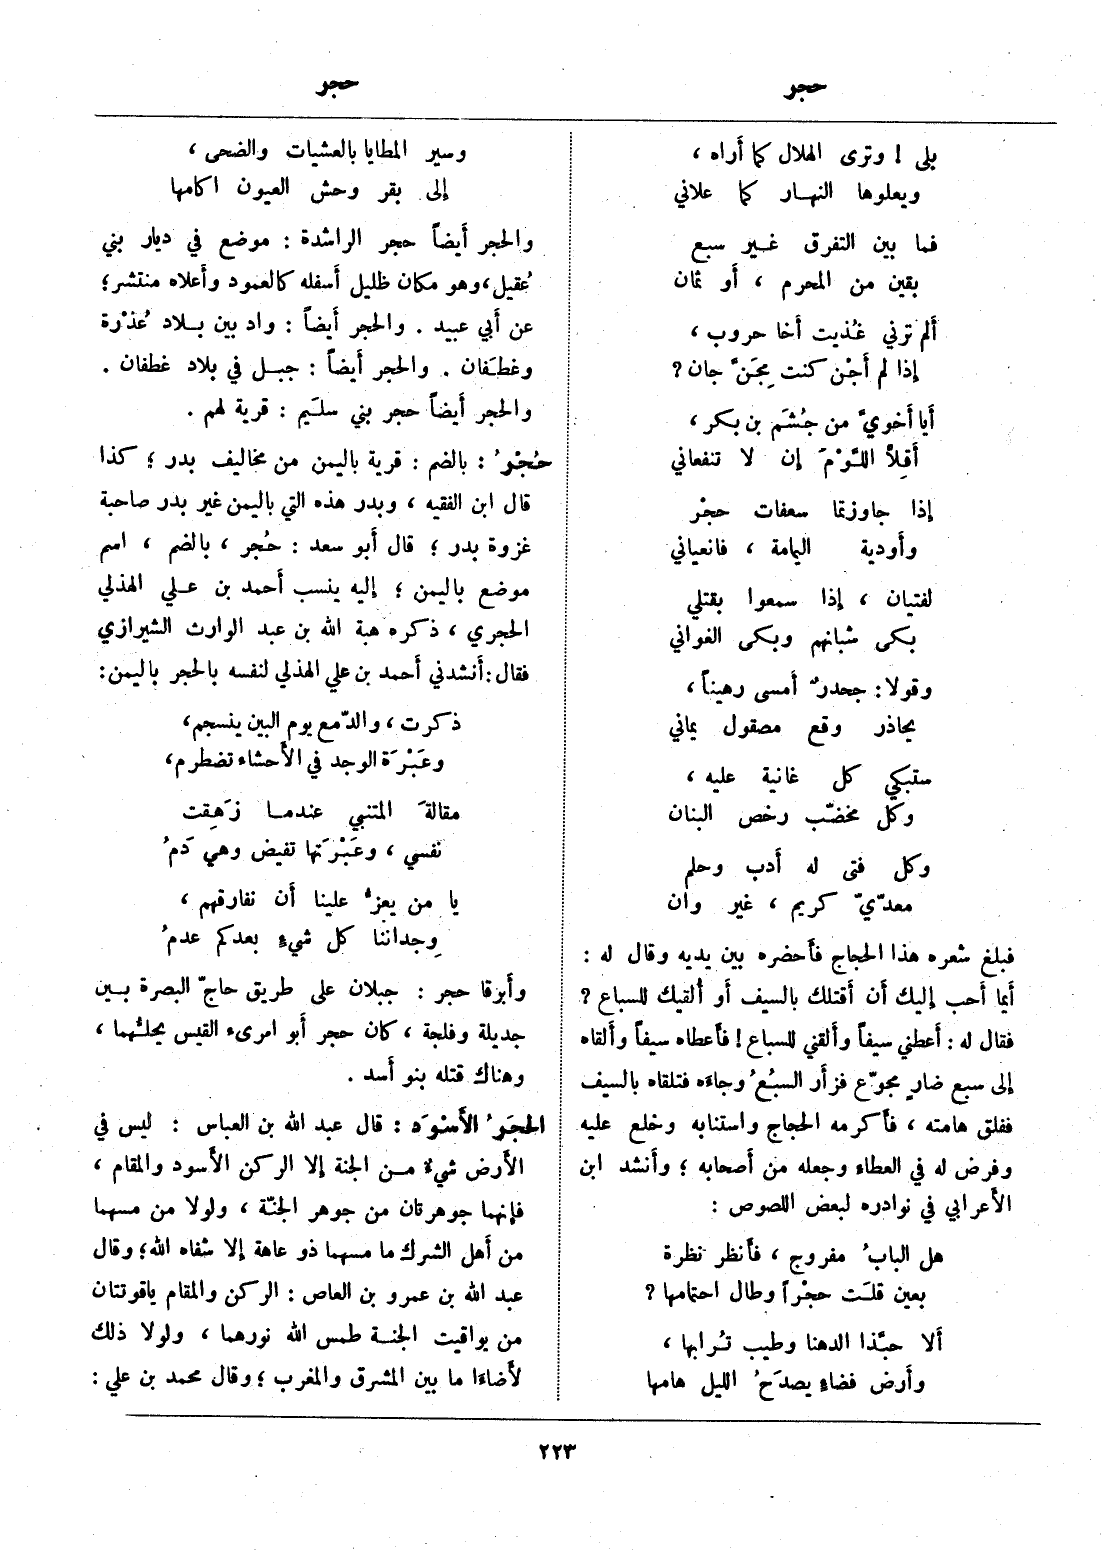 حجر
حجر
بلى ! وترى الهلال كما أراه ،
ويعلوها النهار كما علاني
فما بين التفرق غير سبع
بقين من المحرم ، أو ثمان
ألم ترني غُذيت أخا حروب ،
إذا لم أجْن كنت مِجَنَّ جان ؟
أيا أخويَّ من جُشَم بن بكر ،
أقِلاَّ اللَّوْمَ إن لا تنفعاني
إذا جاوزتما سعفات حجْر
وأودية اليمامة ، فانعياني
لفتيان ، إذا سمعوا بقتلي
بكى شبانهم وبكى الغواني
وقولا : جحدرٌ أمسى رهيناً ،
يحاذر وقع مصقول يماني
ستبكي كل غانية عليه ،
وكل مخضّب رخص البنان
وكل فتى له أدب وحلم
معدّيّ كريم ، غير وان
فبلغ شعره هذا الحجاج فأحضره بين يديه وقال له :
أيما أحب إليك أن أقتلك بالسيف أو ألقيك للسباع ؟
فقال له : أعطني سيفاً وألقني للسباع ! فأعطاه سيفاً وألقاه
إلى سبع ضارٍ مجوّع فزأر السبُعُ وجاءه فتلقاه بالسيف
ففلق هامته ، فأكرمه الحجاج واستنابه وخلع عليه
وفرض له في العطاء وجعله من أصحابه ؛ وأنشد ابن
الأعرابي في نوادره لبعض اللصوص :
هل البابُ مفروج ، فأنظر نظرة
بعين قلَت حجْراً وطال احتمامها ؟
ألا حبّذا الدهنا وطيب تُرابها ،
وأرض فضاءٍ يصدَحُ الليل هامها
وسير المطايا بالعشيات والضحى ،
إلى بقر وحش العيون اكامها
والحجر أيضاً حجر الراشدة : موضع في ديار بني
عُقيل ، وهو مكان ظليل أسفله كالعمود وأعلاه منتشر ؛
عن أبي عبيد . والحجر أيضاً : واد بين بلاد عُذْرة
وغطَفان . والحجر أيضاً : جبل في بلاد غطفان .
والحجر أيضاً حجر بني سليَم : قرية لهم .
حُجْرُ : بالضم : قرية باليمن من مخاليف بدر ؛ كذا
قال ابن الفقيه ، وبدر هذه التي باليمن غير بدر صاحبة
غزوة بدر ؛ قال أبو سعد : حُجر ، بالضم ، اسم
موضع باليمن ؛ إليه ينسب أحمد بن علي الهذلي
الحجري ، ذكره هبة الله بن عبد الوارث الشيرازي
فقال : أنشدني أحمد بن علي الهذلي لنفسه بالحجر باليمن :
ذكرت ، والدّمع يوم البين ينسجم ،
وعَبْرَة الوجد في الأحشاء تضطرم ،
مقالةَ المتنبي عندما زَهِقت
نفسي ، وعَبْرَتها تفيض وهي دَمُ
يا من يعزُّ علينا أن نفارقهم ،
وِجداننا كل شيءٍ بعدكم عدمُ
وأبرقا حجر : جبلان على طريق حاجّ البصرة بين
جديلة وفلجة ، كان حجر أبو امرىء القيس يحلُّهما ،
وهناك قتله بنو أسد .
الحجَرُ الأَسْوَد : قال عبد الله بن العباس : ليس في
الأرض شيءٌ من الجنة إلا الركن الأسود والمقام ،
فإنهما جوهرتان من جوهر الجنّة ، ولولا من مسهما
من أهل الشرك ما مسهما ذو عاهة إلا شفاه الله ؛ وقال
عبد الله بن عمرو بن العاص : الركن والمقام ياقوتتان
من يواقيت الجنة طمس الله نورهما ، ولولا ذلك
لأضاءَا ما بين المشرق والمغرب ؛ وقال محمد بن علي :
٢٢٣